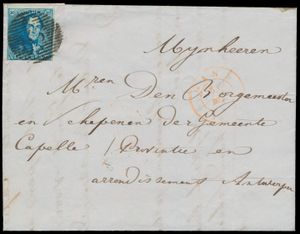 Mynheeren
Mren Den Borgemeester
en schepenen der Gemeente
Capelle / Provintie en
arrondissement Antwerpen